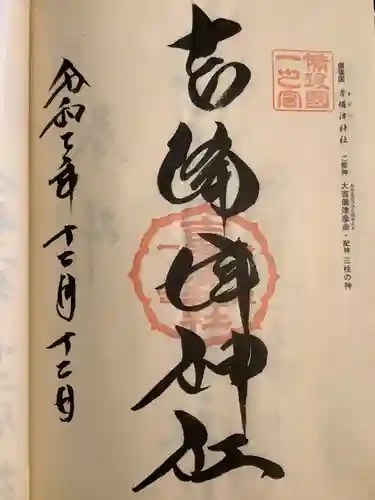 備後国
一之宮
備後国 吉備津神社 ご祭神 大吉備津彦命・配神 三柱の神
吉備津神社
令和二年 十二月 十二日